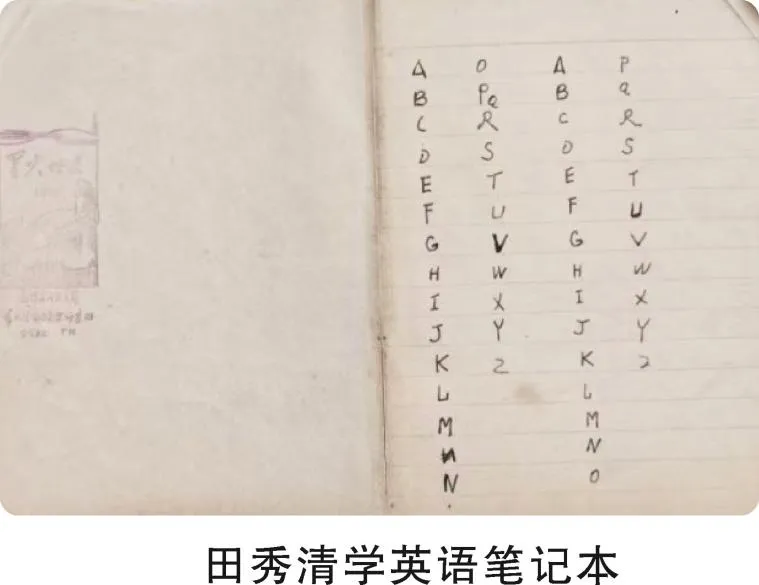 A
B
C
D
E
F
G
H
I
J
K
L
M
N
N
O
Pq
R
S
T
U
V
W
X
Y
Z
A
B
C
D
E
F
G
H
I
J
K
L
M
N
O
P
q
R
S
T
U
V
W
X
Y
Z
田秀清学英语笔记本